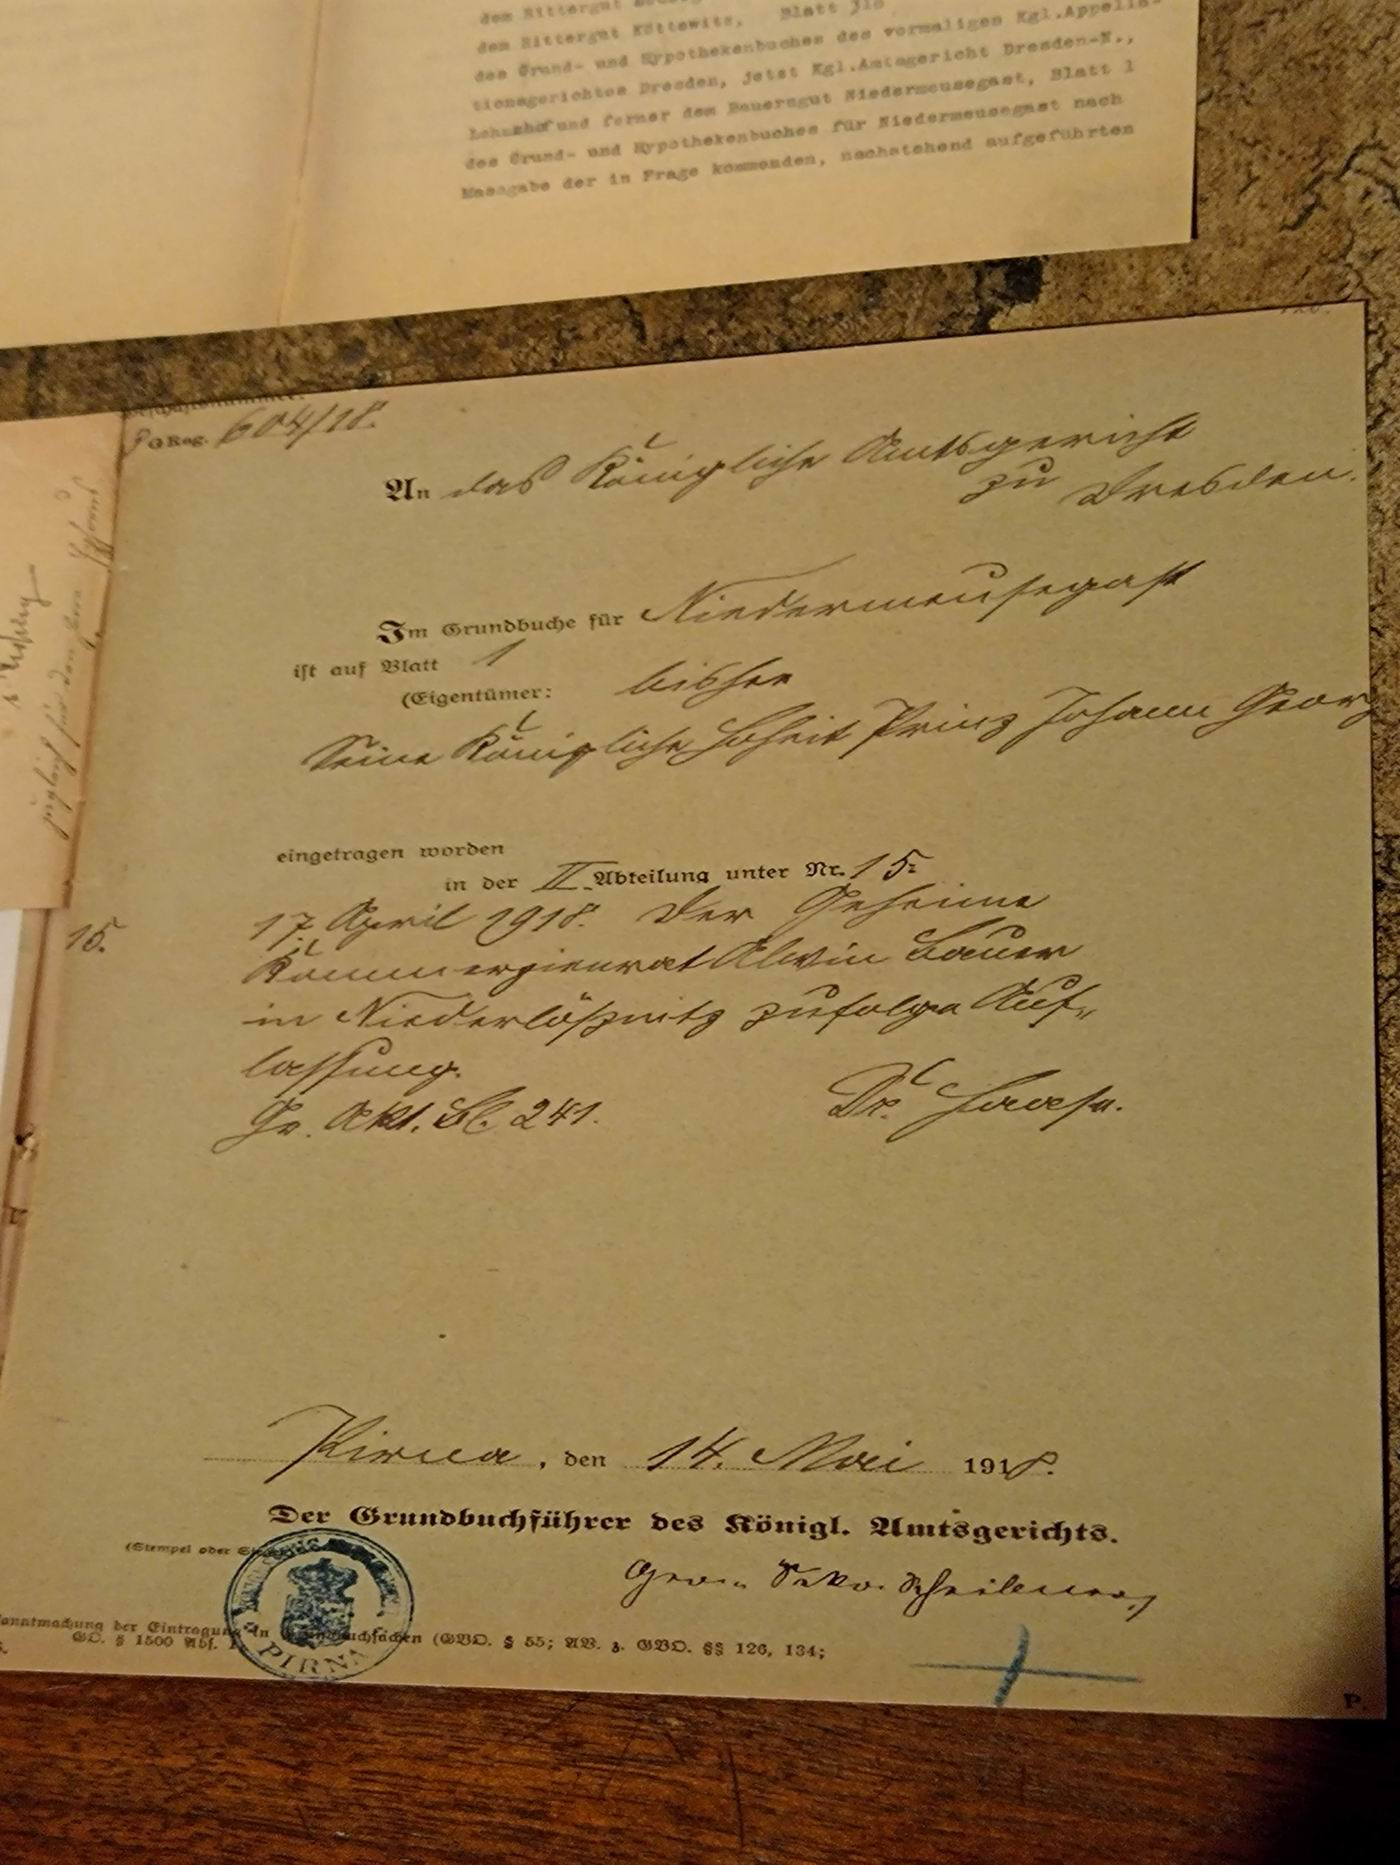 dem Rittergut
dem Rittergut Köttewitz, Blatt 318
des Grund- und Hypothekenbuches des vormaligen Kgl.Appella-
tionsgerichtes Dresden, jetzt Kgl.Amtsgericht Dresden-N.,
Lehnshof und ferner dem Bauerngut Niedermeusegast, Blatt 1
des Grund- und Hypothekenbuches für Niedermeusegast nach
Massgabe der in Frage kommenden, nachstehend aufgeführten
Geschäftsnummer:
GReg. 604/18.
An das Königliche Amtsgericht
zu Dresden.
Im Grundbuche für Niedermeusegast
ist auf Blatt 1
(Eigentümer: bisher
Seine Königliche Hoheit Prinz Johann Georg
eingetragen worden
in der II. Abteilung unter Nr. 15:
15. 17 April 1918. Der Geheime
Kommerzienrat Alwin Bauer
in Niederlößnitz zufolge Auf-
lassung.
Gr. Akt. Bl. 241. Dr. Haase.
Pirna, den 14. Mai 1918.
Der Grundbuchführer des Königl. Amtsgerichts.
(Stempel oder
PIRNA
anntmachung der Eintragung in Grundbuchsachen (GBO. § 55; AV. z. GBO. §§ 126, 134;
GO. § 1500 Abs. 1
P.